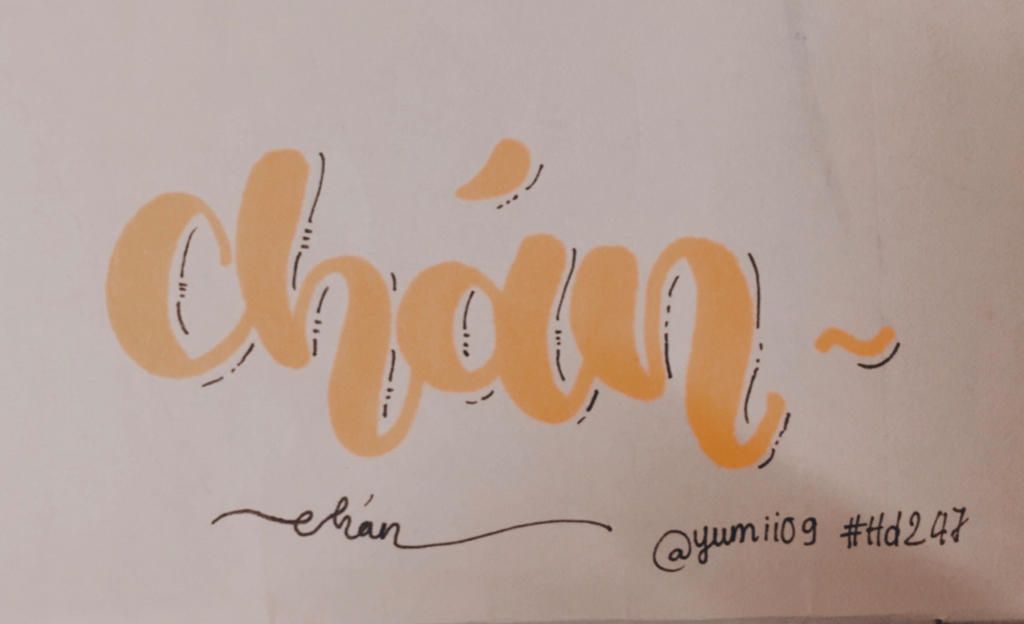 chán ~
chán
@yumii09 #Hd247